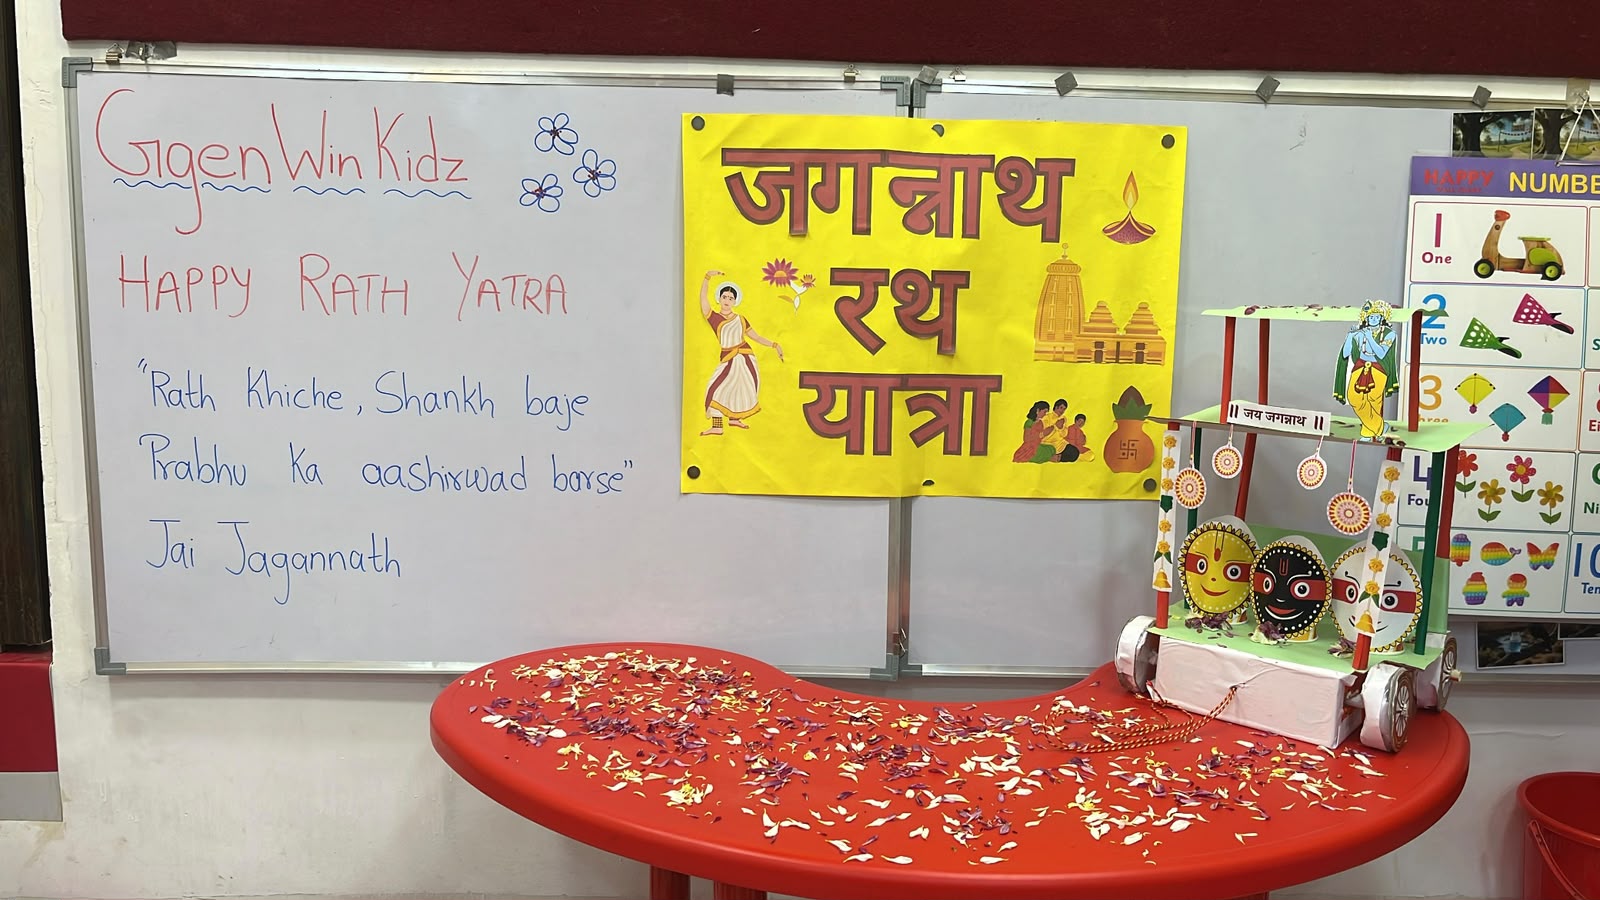 Ggen Win Kidz
HAPPY RATH YATRA
"Rath Khiche, Shankh baje
Prabhu Ka aashirwad barse"
Jai Jagannath
जगन्नाथ
रथ
यात्रा
|| जय जगन्नाथ ||
HAPPY
NUMBE
1
One
2
Two
3
4
Fou
5
10
Ten
Ei
Ni